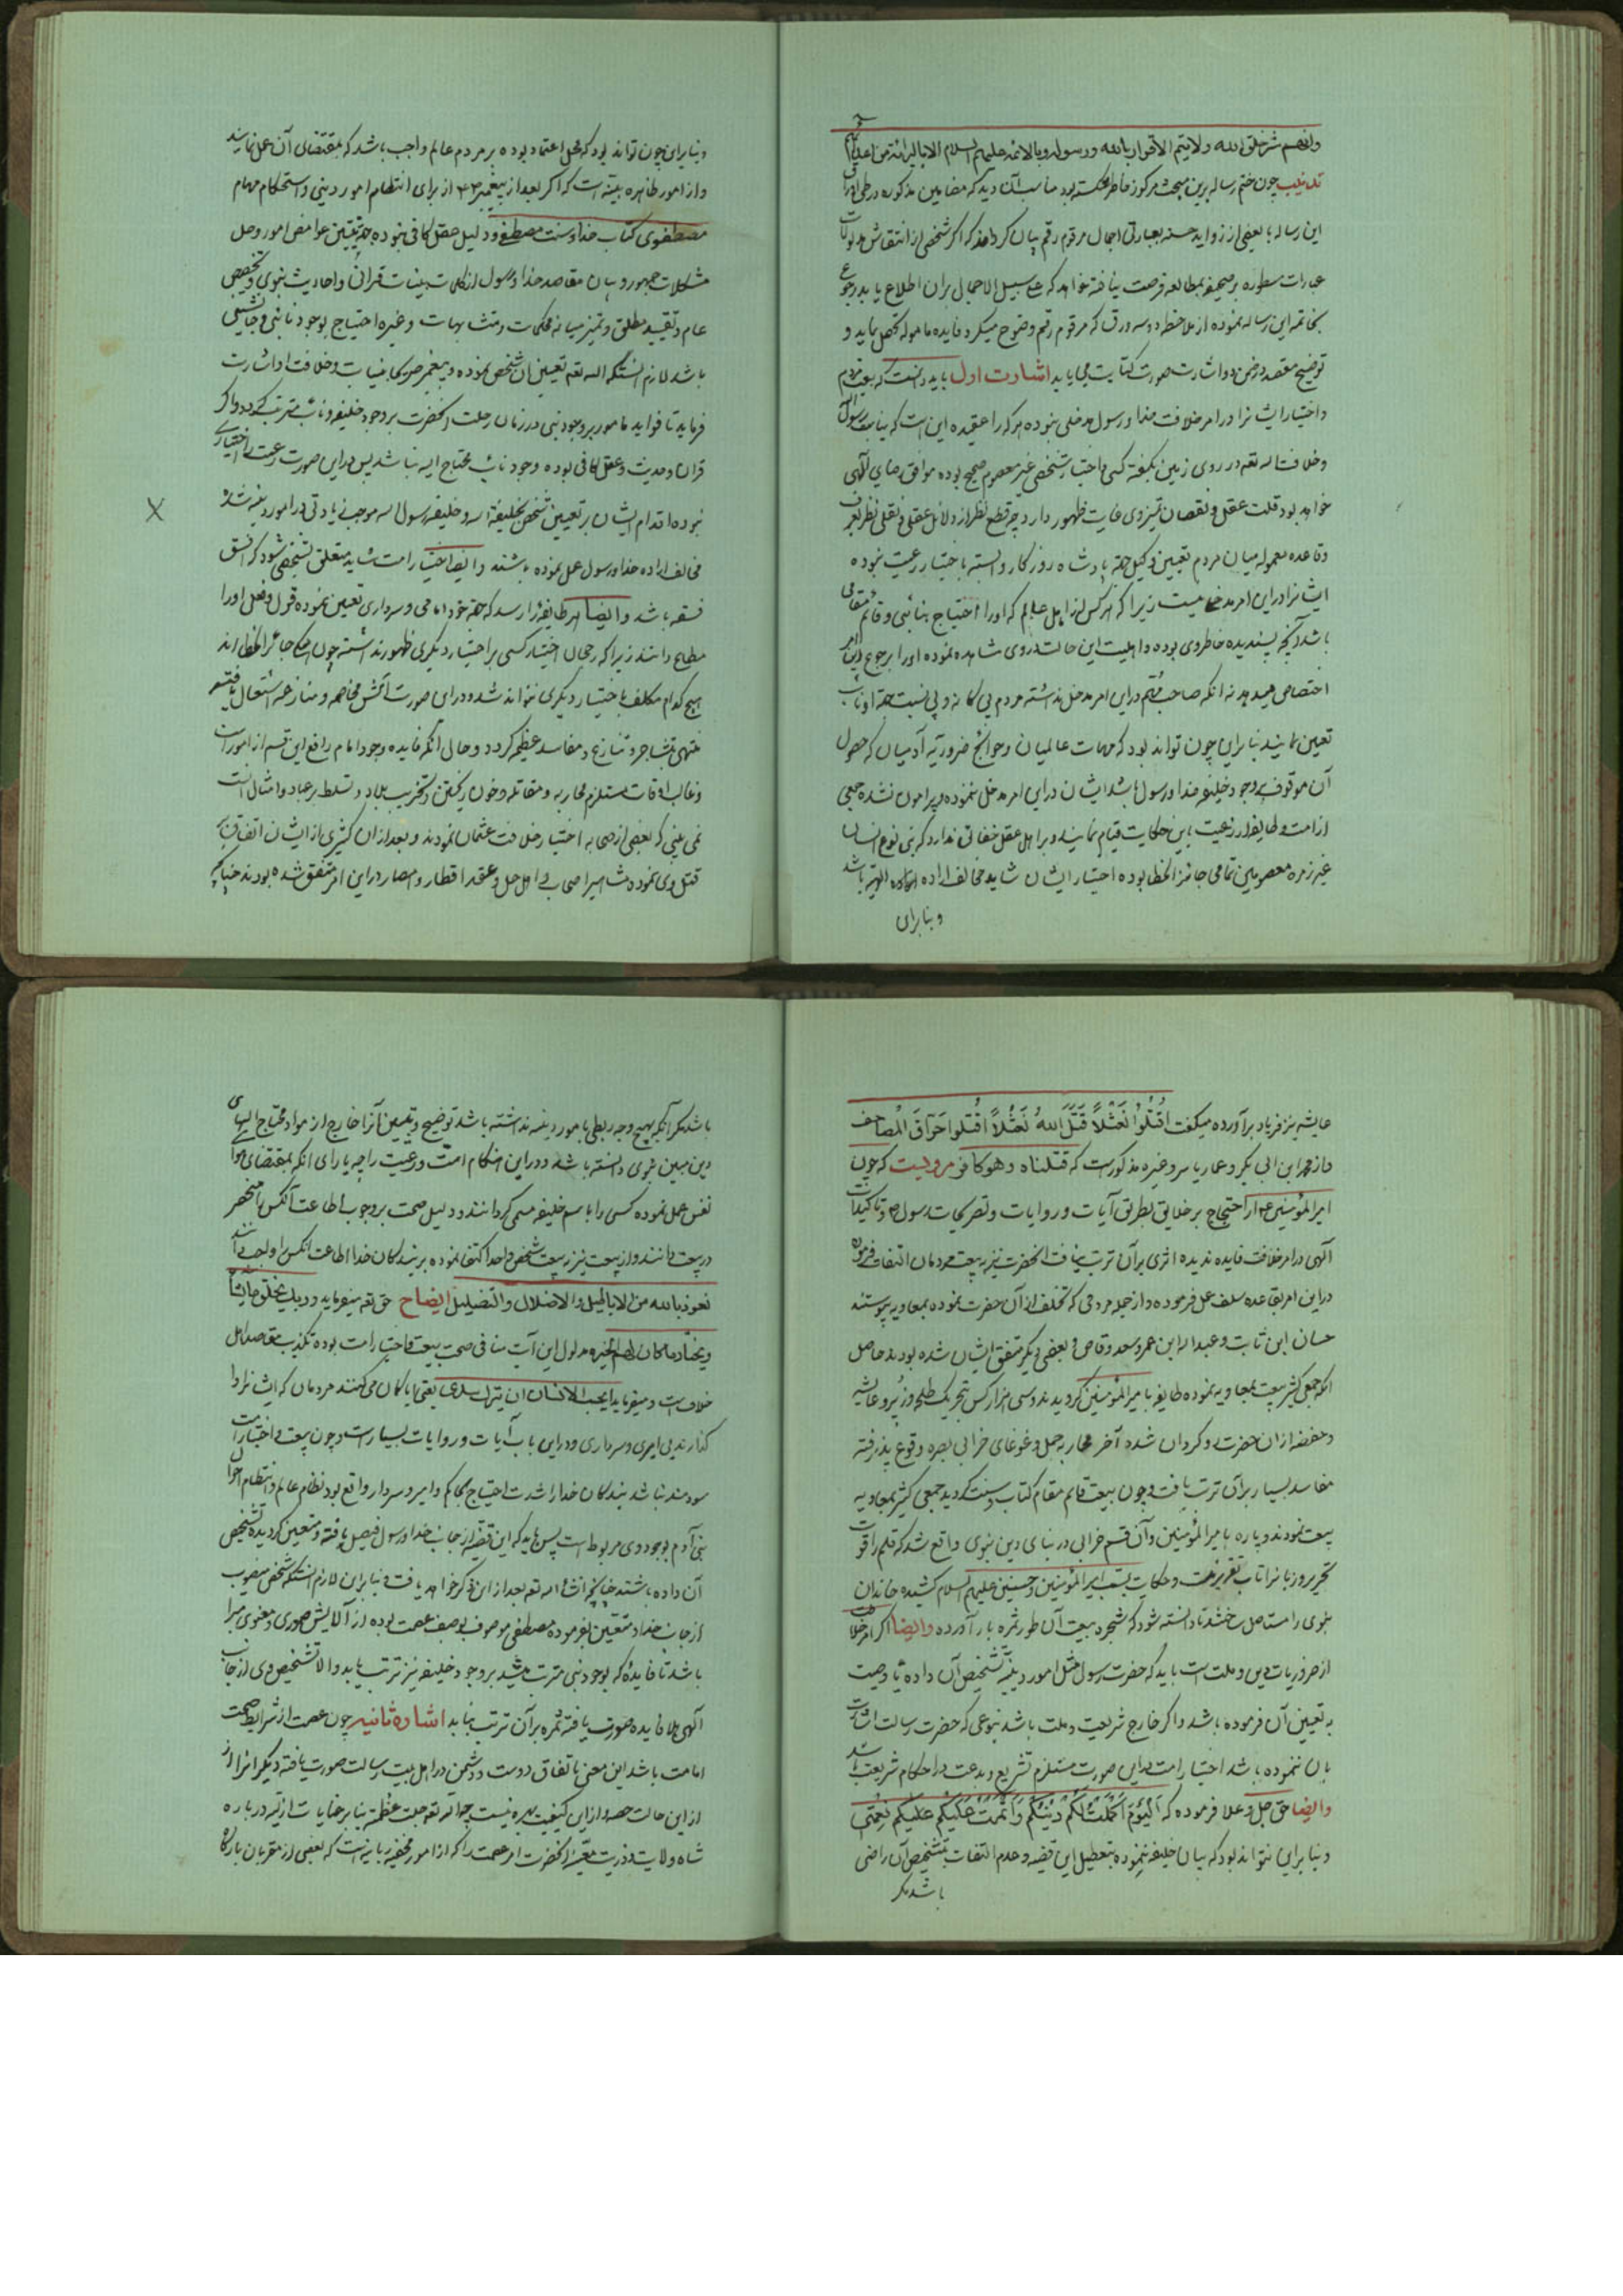 وانهم شر خلق الله ولا يتم الاقرار بالله وبرسوله وبالائمه عليهم السلام الا بالبرائة من اعدائهم
تذنیب چون ختم رساله برین مبحث مرکوز خاطر شکسته بود مناسب آن دید که مضامین مذکوره در طی اوراق
این رساله با بعضی از زواید حسنه بعبارتی اجمال مرقوم رقم بیان کرداند که اگر شخصی از انتقاش
عبارات مسطوره بر صحیفه مطالعه فرصت نیافته خواهد که علی سبیل الاجمال بران اطلاع یابد رجوع
بخاتمه این رساله نموده از ملاحظه دو سه ورق که مرقوم رقم وضوح میکردد فایده مامول تحصیل نماید و
توضیح مقصد در ضمن دو اشارت صورت کتابت می یابد اشارت اول باید دانست که بیعت مردم
و اختیار ایشان را در امر خلافت خدا و رسول مدخلی نبوده هر که را عقیده این است که نیابت رسول
و خلافت الله تعه در روی زمین بگفته کسی و اختیار شخصی غیر معصوم صحیح بوده موافق رضای آلهی
خواهد بود قلت عقل و نقصان تمیز وی غایت ظهور دارد چه قطع نظر از دلائل عقلی و نقلی نظر بعرف
و قاعده معموله میان مردم تعیین وکیل جهة پادشاه روزکار وابسته باختیار رعیت نبوده
ایشانرا در این امر مدخلیت نیست زیرا که هر کس از اهل عالم که او را احتیاج بنائبی و قائم مقامی
باشد آنچه پسندیده خاطر وی بوده و اهلیت این حالت در وی مشاهده نموده او را برجوع این امر
اختصاص میدهد نه انکه صاحب مهم در این امر مدخل نداشته مردم بی کانه و بی نسبت جهة او نایب
تعیین نمایند بنابراین چون تواند بود که مهمات عالمیان و حوائج ضروریه آدمیان که حصول
آن موقوف بر وجود خلیفه خدا و رسول باشد ایشان در این امر مدخل ننموده و پیرامون نشده جمعی
از امت و طایفه از رعیت باین حکایت قیام نمایند و بر اهل عقل خفائی ندارد که بنی نوع انسان
غیر زمره معصومین تمامی جائز الخطا بوده اختیار ایشان شاید مخالف اراده الهیه باشد
و بنابراین
و بنابراین چون تواند بود که محل اعتماد بوده بر مردم عالم واجب باشد که بمقتضای آن عمل نمایند
و از امور ظاهره بینه است که اگر بعد از پیغمبر از برای انتظام امور دینی و استحکام مهام
مصطفوی کتاب خدا و سنت مصطفی و دلیل عقل کافی نبوده جهة تیقین غوامض امور و حل
مشکلات جمهور و بیان مقاصد خدا و رسول از کلمات بینات قرانی و احادیث نبوی و تخصیص
عام و تقیید مطلق و تمیز میانه محکمات و متشابهات و غیره احتیاج بوجود نائبی و جانشینی
باشد لازم انستکه الله تعه تعیین ان شخص نموده و پیغمبر صریحا نیابت و خلافت او اشارت
فرماید تا فواید مامور بر وجود نبی در زمان رحلت انحضرت بر وجود خلیفه و نائب مترتب کردد و اگر
قران و حدیث و عقل کافی بوده وجود نائب محتاج الیه نباشد پس در این صورت رعیت را اختیاری
نبوده اقدام ایشان بر تعیین شخص بخلیفة الله و خلیفه رسول الله موجب زیادتی در امور دینیه شده
مخالف اراده خدا و رسول عمل نموده باشند و ایضا اختیار امت شاید متعلق بشخصی شود که افسق
فسقه باشد و ایضا هر طایفه را رسد که جهة خود امامی و سرداری تعیین نموده قول و فعل او را
مطاع دانند زیرا که رجحان اختیار کسی بر اختیار دیگری ظهور نداشته چون همکی جائز الخطا اند
هیچ کدام مکلف باختیار دیگری نتواند شد و در این صورت آتش مخاصمه و منازعه اشتعال یافته
منتهی بتشاجر و تنازع و مفاسد عظیمه کردد و حال آنکه فایده وجود امام رافع این قسم از امور است
و غالب اوقات مستلزم محاربه و مقاتله و خون ریختن و تخریب بلاد و تسلط بر عباد و امثال انست
نمی بینی که بعضی از صحابه اختیار خلافت عثمان نمودند و بعد از ان کثیری از ایشان اتفاق بر
قتل وی نموده مشاهیر اصحاب و اهل حل و عقد اقطار و امصار در این امر متفق شده بودند چنانچه
عایشه نیز فریاد برآورده میکفت اقتلوا نعثلا قتل الله نعثلا اقتلوا حراق المصاحف
و از محمد ابن ابی بکر و عمار یاسر و غیره مذکورست که قتلناه وهو کافر مرویست که چون
امیر المؤمنین ع از احتجاج بر خلایق بطریق آیات و روایات و تصریحات رسول ص و تاکیدات
آلهی در امر خلافت فایده ندیده اثری بر آن ترتب نیافت انحضرت نیز به بیعت مردمان التفات فرموده
در این امر بقاعده سلف عمل فرموده و از جمله مردمی که تخلف از آن حضرت نموده بمعاویه پیوستند
حسان ابن ثابت و عبدالله ابن عمر و سعد وقاص و بعضی دیگر متفق ایشان شده بودند حاصل
انکه جمعی کثیر بیعت بمعاویه نموده طایفه بامیر المؤمنین کرویدند و سی هزار کس بتحریک طلحه و زبیر و عایشه
و حفصه از ان حضرت رو کردان شده آخر محاربه جمل و غوغای خرابی بصره وقوع پذیرفته
مفاسد بسیار بر آن ترتب یافت و چون بیعت قایم مقام کتاب و سنت کردید جمعی کثیر بمعاویه
بیعت نمودند و پاره بامیر المؤمنین و آن قسم خرابی در بنای دین نبوی واقع شد که قلم را قوت
تحریر و زبانرا تاب تقریر نیست و حکایت بسب امیر المؤمنین و حسنین علیهم السلام کشیده خاندان
نبوی را مستاصل ساختند تا دانسته شود که شجره بیعت آن طور ثمره بار آورده و ایضا اکر امر خلافت
از ضروریات دین و ملت است باید که حضرت رسول مثل امور دینیه تشخیص آن داده یا وصیت
به تعیین آن فرموده باشد و اکر خارج شریعت و ملت باشد بنوعی که حضرت رسالت اشارت
بان ننموده باشد اختیار امت در این صورت مستلزم تشریع و بدعت در احکام شریعت باشد
و ایضا حق جل و علا فرموده که الیوم اکملت لکم دینکم و اتممت علیکم علیکم نعمتی
و بنابراین نتواند بود که بیان خلیفه ننموده بتعطیل این قضیه و عدم التفات بتشخیص آن راضی
باشد مکر
باشد مکر آنکه بهیچ وجه ربطی بامور دینیه نداشته باشد توضیح و تبیین آنرا خارج از مواد محتاج الیهای
دین مبین نبوی دانسته باشد و در این هنکام امت و رعیت را چه یارای انکه بمقتضای هوا
نفس عمل نموده کسی را باسم خلیفه مسمی کردانند و دلیل صحت بر وجوب اطاعت آنکس را منحصر
در بیعت دانند و از بیعت نیز به بیعت شخص واحد اکتفا نموده بر بندکان خدا اطاعت انکس را واجب دانند
نعوذ بالله من الاباطیل والاضلال والتضلیل ایضاح حق تعه میفرماید و ربک یخلق ما یشاء
ویختار ما کان لهم الخیره مدلول این آیت منافی صحت بیعت و اختیار امت بوده تکذیب مقاصد اهل
خلاف است و میفرماید ایحسب الانسان ان یترک سدی یعنی ایا کمان می کنند مردمان که ایشانرا وا
کذارند بی امیری و سرداری و در این باب آیات و روایات بسیار است و چون بیعت و اختیار امت
سودمند نباشد بندکان خدا را شدت احتیاج بحاکم و امیر و سردار واقع بود نظام عالم و انتظام احوال
بنی آدم بوجود وی مربوط است پس باید که این قضیه از جانب خدا و رسول فیصل یافته و متعین کردیده تشخیص
آن داده باشند چنانچه انشاء الله تعه بعد از این ذکر خواهد یافت و بنابراین لازم انستکه شخص منصوب
از جانب خدا و متعین بفرموده مصطفی موصوف بوصف عصمت بوده از آلایش صوری و معنوی مبرا
باشد تا فایده که بوجود نبی مترتب میشد بر وجود خلیفه نیز ترتب یابد والا تشخیص وی از جانب
آلهی بلا فایده صورت یافته ثمره بر آن ترتب نیابد اشاره ثانیه چون عصمت از شرایط صحت
امامت باشد این معنی باتفاق دوست و دشمن در اهل بیت رسالت صورت یافته دیکرانرا از
از این حالت حصه و از این کیفیت بهره نیست چرا که تعه جلت عظمته بنابر عنایات ازلیه درباره
شاه ولایت و ذریت انحضرت امر عصمت را که از امور مخفیه ربانیه است که بعضی از مقربان بارکاه